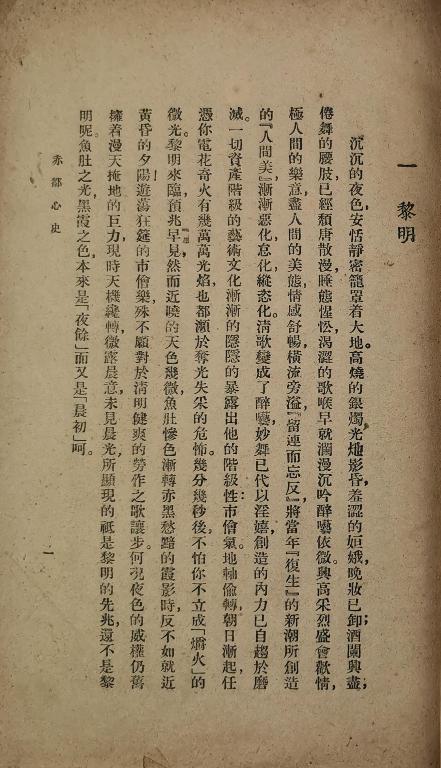 一 黎明
沉沉的夜色，安恬靜密籠罩着大地。高燒的銀燭光灺影昏，羞澀的姮娥，晚妝已卸；酒闌興盡；
倦舞的腰肢已經頹唐散漫，睡態惺忪，渴澀的歌喉早就瀾漫沉吟醉囈依微。興高采烈盛會歡情，
極人間的樂意，盡人間的美態，情感舒暢，橫流旁溢，『留連而忘反，』將當年『復生』的新潮所創造
的『人間美』漸漸惡化，怠化，縱恣化。清歌變成了醉囈，妙舞已代以淫嬉，創造的內力已自趨於磨
滅。一切資產階級的藝術文化漸漸的隱隱的暴露出他的階級性：市儈氣。地軸偷轉，朝日漸起，任
憑你電花奇火有幾萬萬光焰，也都瀕於奪光失采的危怖。幾分幾秒後，不怕你不立成「爝火」的
微光。黎明來臨，預兆早見，然而近曉的天色，幾微魚肚慘色漸轉赤黑愁黯的霞影時，反不如就近
黃昏的夕陽！遊蕩狂筵的市儈樂，殊不願對於清明健爽的勞作之歌讓步。何況夜色的威權仍舊
擁着漫天掩地的巨力，現時天機纔轉，微露晨意，未見晨光，所顯現的祇是黎明的先兆，還不是黎
明呢。魚肚之光，黑霞之色，本來是「夜餘」而又是「晨初」呵。
赤都心史
一